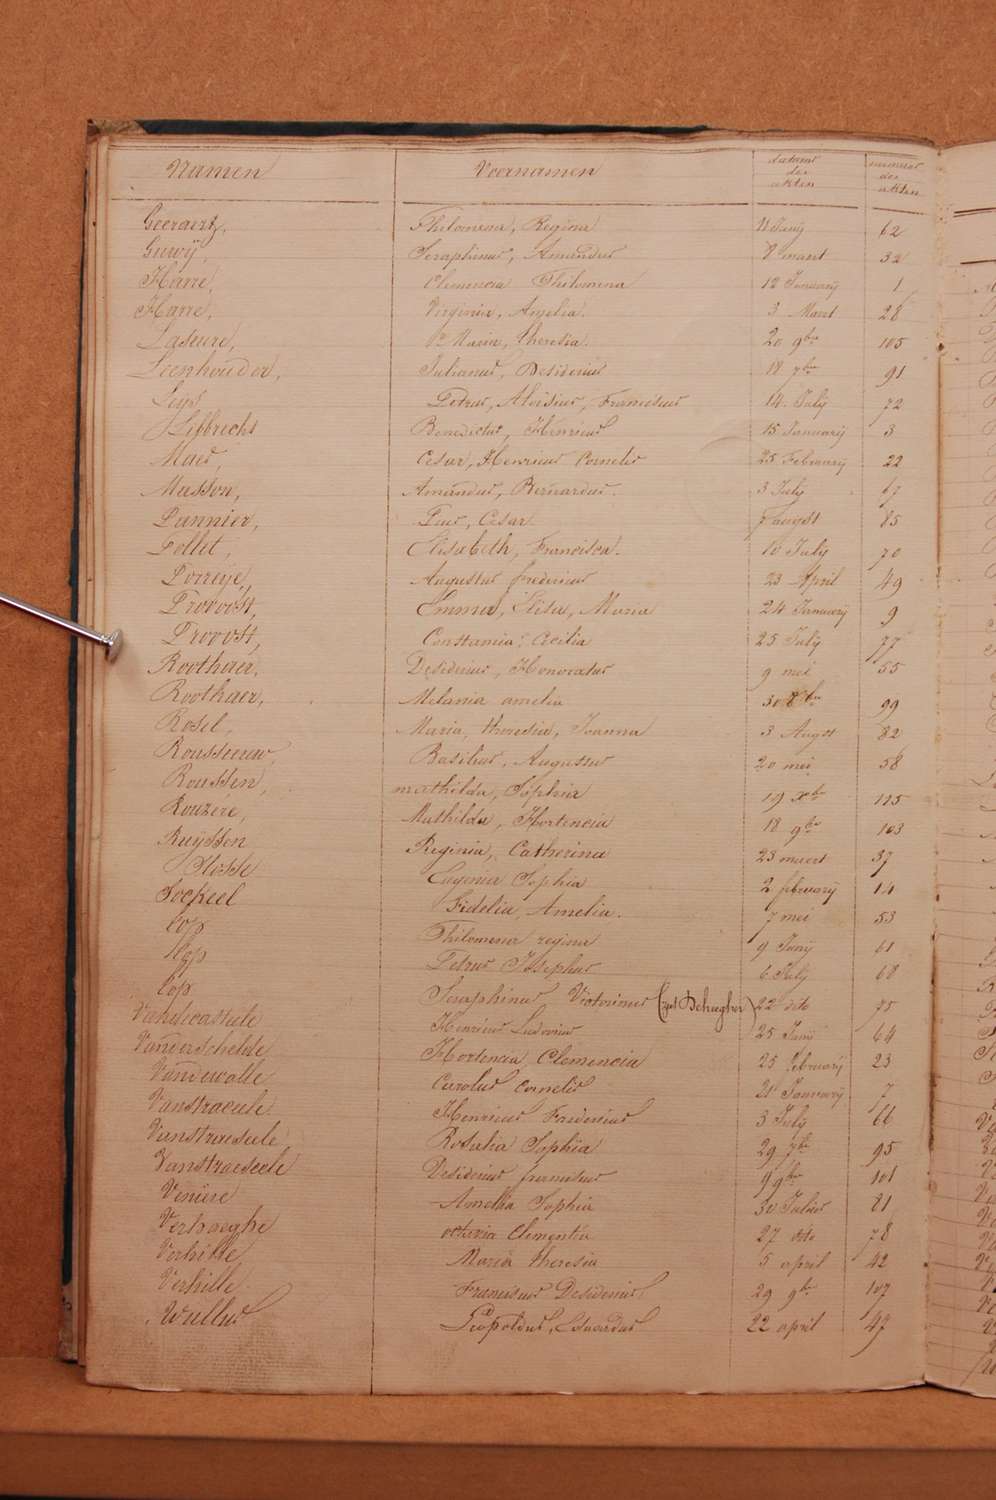 Namen Voornamen datum der akten nummer der akten
Geeraert, Philomena, Regina 11 Junÿ 62
Guwÿ, Seraphinus, Amandus 8 maart 32
Harre, Clemencia Philomena 12 Januarÿ 1
Harre, Virginia, Amelia. 3 Maart 28
Laseure, Maria, theresia. 20 9bre 105
Leenhouder, Julianus, Desiderius 18 7bre 91
Leys Petrus, Aloisius, Franciscus 14 July 72
Liefbrecht Benedictus, Henricus 15 Januarÿ 3
Maes, Cesar, Henricus Cornelis 25 Februarÿ 22
Masson, Amandus, Bernardus. 3 July 67
Pannier, Pius, Cesar 7 augst 85
Pollet, Elisabeth, Francisca. 10 July 70
Porreÿe, Augustus fredericus 23 April 49
Provost, Emma, Elisa, Maria 24 Januarÿ 9
Provost, Constamia, Cecilia 25 July 77
Roothaer, Desiderius, Honoratus 9 mei 55
Roothaer, Melania amelia 30 8bre 99
Rosel, Maria, theresia, Joanna 3 Augst 82
Rousseeuw, Basilius, Augustus 20 mei 58
Roussen, mathilda, Sophia 19 Xbre 115
Rouzere, Mathilda, Hortencia 18 9bre 103
Ruÿssen Reginia, Catherina 23 maart 37
Slosse Eugenia Sophia 2 februarÿ 14
Sockeel Fidelia, Amelia. 7 mei 53
top Philomena regina 9 Junÿ 61
top Petrus Josephus 6 July 68
top Seraphinus Victorinus (zut Dehaegher) 22 dito 75
Vandecasteele Henricus Ludovicus 25 Junÿ 64
Vanderschelde Hortencia Clemencia 25 Februarÿ 23
Vandewalle Carolus Cornelis 21 Januarÿ 7
Vanstraceele Henricus Fredericus 3 July 66
Vanstraeseele Rosalia Sophia 29 7bre 95
Vanstraeseele Desiderius franciscus 9 9bre 101
Veniere Amelia Sophia 30 Julius 81
Verhaeghe octavia Clementia 27 dito 78
Verhille Maria theresia 5 april 42
Verhille Franciscus Desiderius 29 9bre 107
Wullus Leopoldus, Eduardus 22 april 47